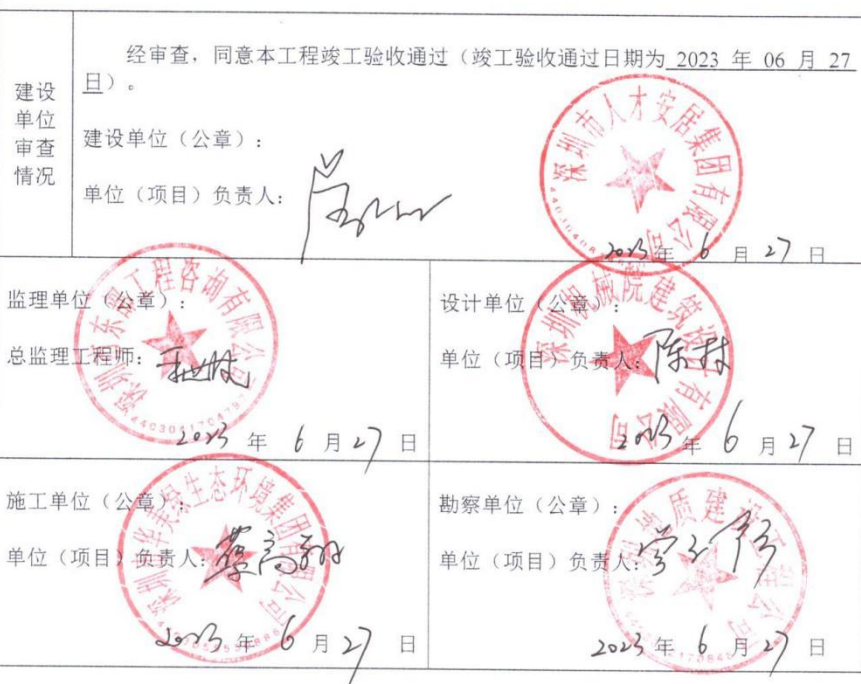 经审查，同意本工程竣工验收通过（竣工验收通过日期为 2023 年 06 月 27
日）。
建设
单位
审查
情况
建设单位（公章）：
单位（项目）负责人：
深圳市人才安居集团有限公司
2023 年 6 月 27 日
监理单位（公章）：
总监理工程师：
2023 年 6 月 27 日
设计单位（公章）：
单位（项目）负责人：陈林
深圳机械院建筑设计有限公司
2023 年 6 月 27 日
施工单位（公章）：
单位（项目）负责人：
2023 年 6 月 27 日
勘察单位（公章）：
单位（项目）负责人：
2023 年 6 月 27 日